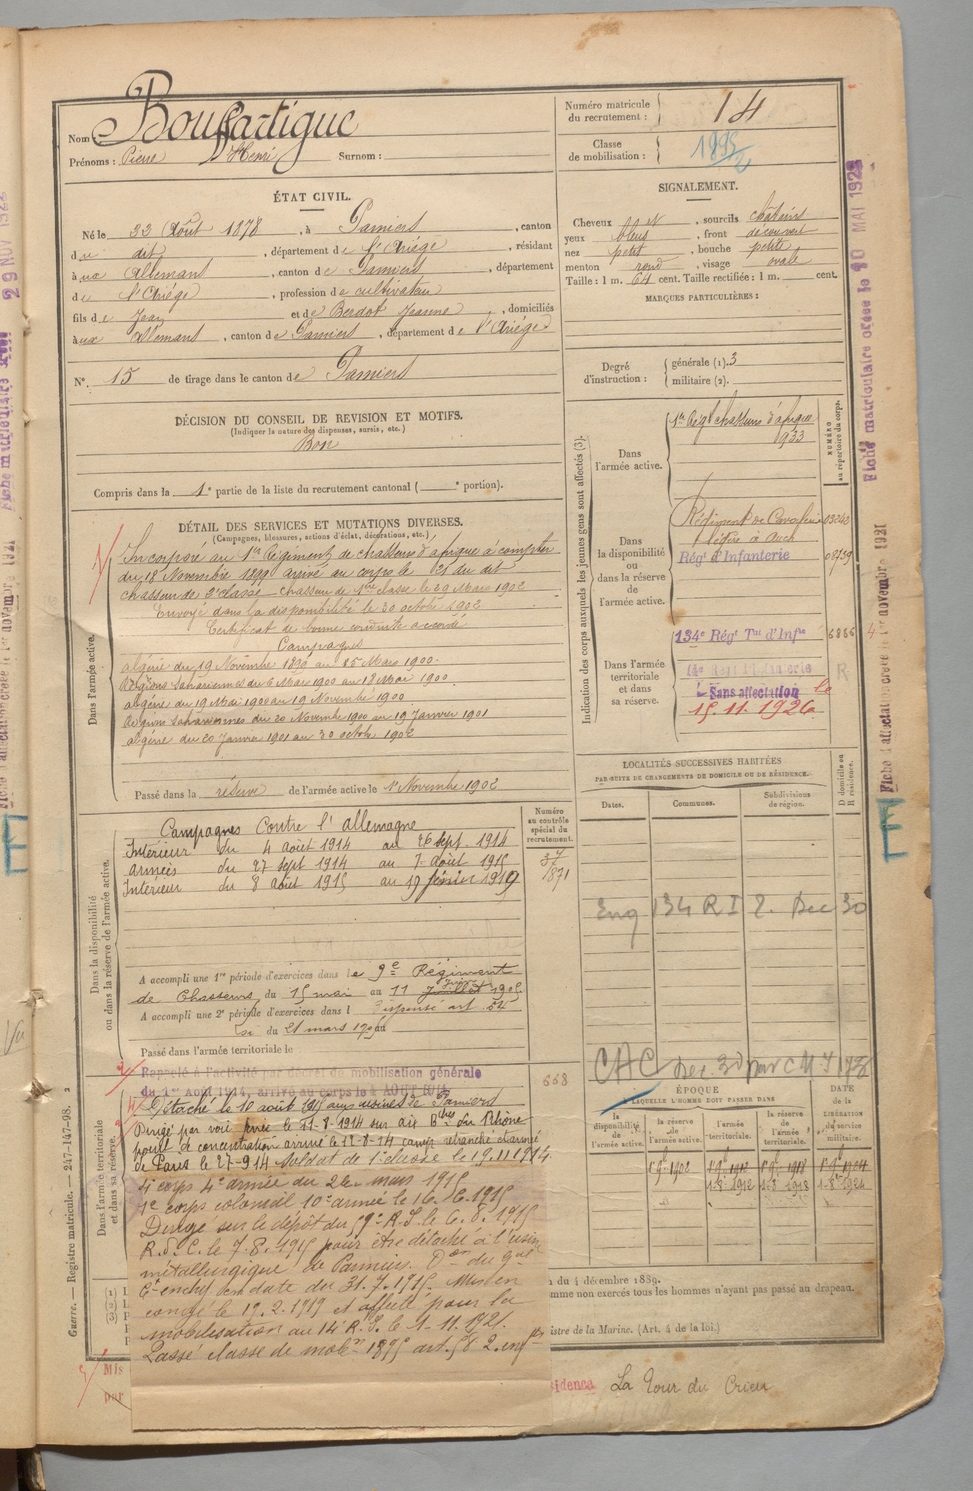 Nom Bouffartigue
Prénoms : Pierre Henri Surnom :
Numéro matricule du recrutement : 14
Classe de mobilisation : 1895/2
ÉTAT CIVIL.
Né le 22 Août 1878, à Pamiers, canton
du dit, département de l'Ariège, résidant
aux Allemans, canton de Pamiers, département
de l'Ariège, profession de cultivateur
fils de Jean et de Berdot Jeanne, domiciliés
aux Allemans, canton de Pamiers, département de l'Ariège
N°. 15 de tirage dans le canton de Pamiers
SIGNALEMENT.
Cheveux, sourcils châtains
yeux bleus, front découvert
nez petit, bouche petite
menton rond, visage ovale
Taille : 1 m. 64 cent. Taille rectifiée : 1 m. cent.
MARQUES PARTICULIÈRES :
Degré d'instruction : générale (1). 3
militaire (2).
DÉCISION DU CONSEIL DE REVISION ET MOTIFS.
(Indiquer la nature des dispenses, sursis, etc.)
Bon
Compris dans la 1e partie de la liste du recrutement cantonal ( e portion).
DÉTAIL DES SERVICES ET MUTATIONS DIVERSES.
(Campagnes, blessures, actions d'éclat, décorations, etc.)
Dans l'armée active.
Incorporé au 1er Régiment de chasseurs d'afrique à compter
du 18 Novembre 1899 arrivé au corps le 21 du dit
chasseur de 2e classe - Chasseur de 1ère classe le 29 Mars 1902
Envoyé dans la disponibilité le 30 octobre 1902
Certificat de bonne conduite accordé
Campagnes
algérie du 19 Novembre 1899 au 5 Mars 1900.
Régions sahariennes du 6 Mars 1900 au 18 Mai 1900
algérie du 19 Mai 1900 au 19 Novembre 1900
Régions sahariennes du 20 Novembre 1900 au 19 Janvier 1901
algérie du 20 Janvier 1901 au 30 octobre 1902
Passé dans la réserve de l'armée active le 1er Novembre 1902
Indication des corps auxquels les jeunes gens sont affectés (3).
NUMÉRO au répertoire du corps.
Dans l'armée active.
1er Régt chasseurs d'afrique
1933
Dans la disponibilité ou dans la réserve de l'armée active.
Régiment de Cavalerie
légère à Auch
Régt d'Infanterie
Dans l'armée territoriale et dans sa réserve.
134e Régt Tal d'Infie 6886
14e Régt d'Infanterie
Sans affectation le
15.11.1926
LOCALITÉS SUCCESSIVES HABITÉES
PAR SUITE DE CHANGEMENTS DE DOMICILE OU DE RÉSIDENCE.
Dates. Communes. Subdivisions de région. D domicile ou R résidence.
Eng 134 R I 2. Dec 30
Dans la disponibilité ou dans la réserve de l'armée active.
Numéro au contrôle spécial du recrutement.
Campagnes Contre l'allemagne
Intérieur du 4 août 1914 au 26 sept. 1914
Armées du 27 sept 1914 au 7 août 1915
Intérieur du 8 août 1915 au 19 février 1919
A accompli une 1re période d'exercices dans le 9e Régiment
de Chasseurs du 15 mai au 11 juin 1905
A accompli une 2e période d'exercices dans l Dispensé art. 52
Loi du 21 mars 1905
Passé dans l'armée territoriale le
Dans l'armée territoriale et dans sa réserve.
Rappelé à l'activité par décret de mobilisation générale
du 1er Août 1914, arrivé au corps le 4 AOUT 1914
668
Détaché le 10 août 1915 aux usines de Pamiers
Dirigé par voie ferrée le 11-8-1914 sur dit Bches du Rhône
point de concentration arrivé le 12-8-14 camp retranché
de Paris le 27-9-14 Soldat de 1e classe le 19.11.1914
4e corps 4e armée du 26 mars 1915
1e corps colonial 10e armée le 16.6.1915
Dirigé sur le dépôt du 59e R.I. le 6.8.1915
R.d.C. le 7.8.1915 pour être détaché à l'usine
métallurgique de Pamiers. Don du Gal
Ct en chef en date du 31.7.1915. Mis en
congé le 19.2.1919 et affecté pour la
mobilisation au 14e R.I. le 1-11-1921.
Passé classe de mobon 1895 art. 58 2 enfts
CAC Dec 30 par C M 7178
ÉPOQUE
A LAQUELLE L'HOMME DOIT PASSER DANS
la disponibilité de l'armée active. la réserve de l'armée active. l'armée territoriale. la réserve de l'armée territoriale.
DATE de la LIBÉRATION du service militaire.
n du 4 décembre 1889.
mme non exercés tous les hommes n'ayant pas passé au drapeau.
istre de la Marine. (Art. 4 de la loi.)
Mis
par
sidence La Tour du Crieu
Guerre. — Registre matricule. — 247-147-98. 2
Fiche matriculaire créée le 10 MAI 1922
Fiche d'affectation créée le 1er novembre 1921
29 NOV 192
Vu